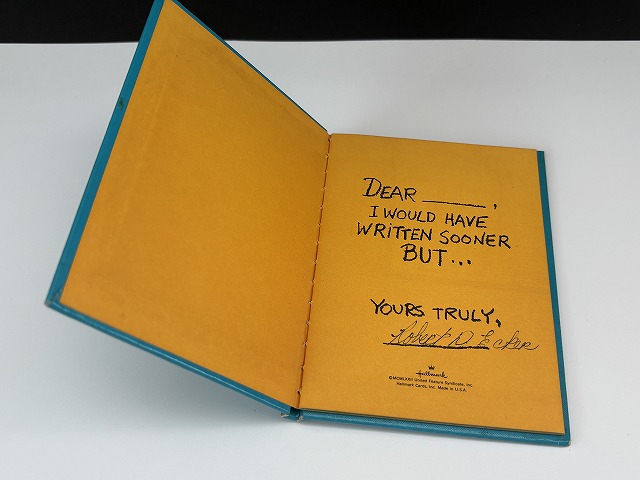 DEAR ________,
I WOULD HAVE
WRITTEN SOONER
BUT...
YOURS TRULY,
Robert D. Ecker
Hallmark
©MCMLXXII United Feature Syndicate, Inc.
Hallmark Cards, Inc. Made in U.S.A.